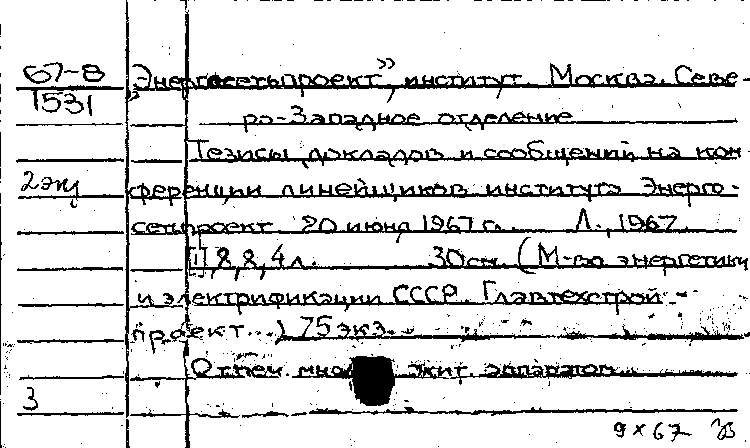 67-8
1531
„Энергосетьпроект”, институт. Москва. Севе-
ро-Западное отделение
Тезисы докладов и сообщений на кон-
2 экз
ференции линейщиков института Энерго-
сетьпроект. 20 июня 1967 г. Л., 1967.
[1], 8, 8, 4 л. 30 см. (М-во энергетики
и электрификации СССР. Главтехстрой-
проект...) 75 экз.
Отпеч. множит. аппаратом
3
9 X 67